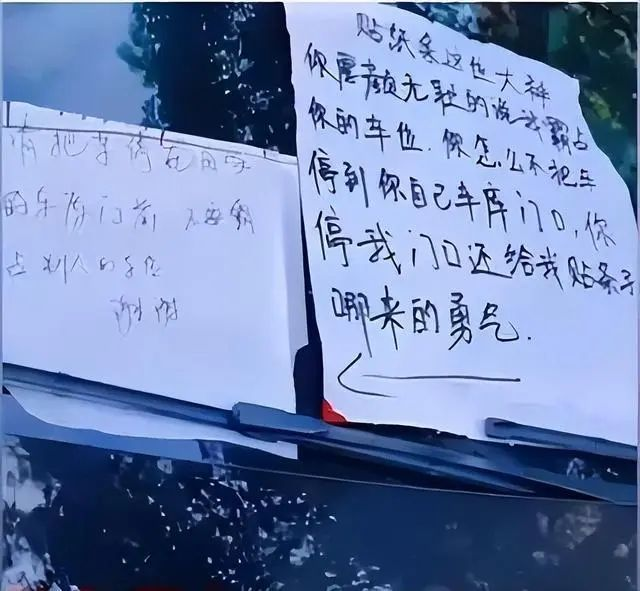 把车停在自家
的车库门前 不要霸
占别人的车位
谢谢
贴纸条这位大神
你厚颜无耻的说我霸占
你的车位.你怎么不把车
停到你自己车库门口,你
停我门口还给我贴条子
哪来的勇气.